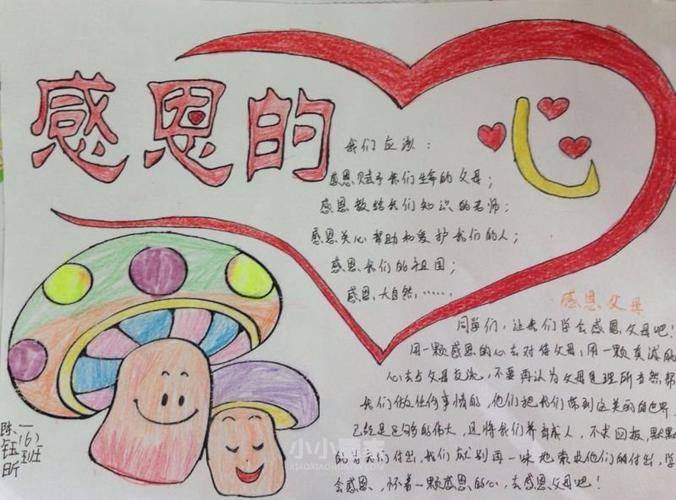 感恩的心
我们应该：
感恩赋予我们生命的父母；
感恩教给我们知识的老师；
感恩关心帮助和爱护我们的人；
感恩我们的祖国；
感恩大自然……
感恩父母
同学们，让我们学会感恩父母吧！
用一颗感恩的心去对待父母，用一颗真诚的
心去与父母交流，不要再认为父母是理所当然帮
我们做任何事情的，他们把我们带到这美的世界，
已经是足够的伟大，还将我们养育成人，不求回报，默默
的为我们付出，我们就别再一味地索取他们的付出，学
会感恩，怀着一颗感恩的心，去感恩父母吧！
一(6)班
陈钰昕